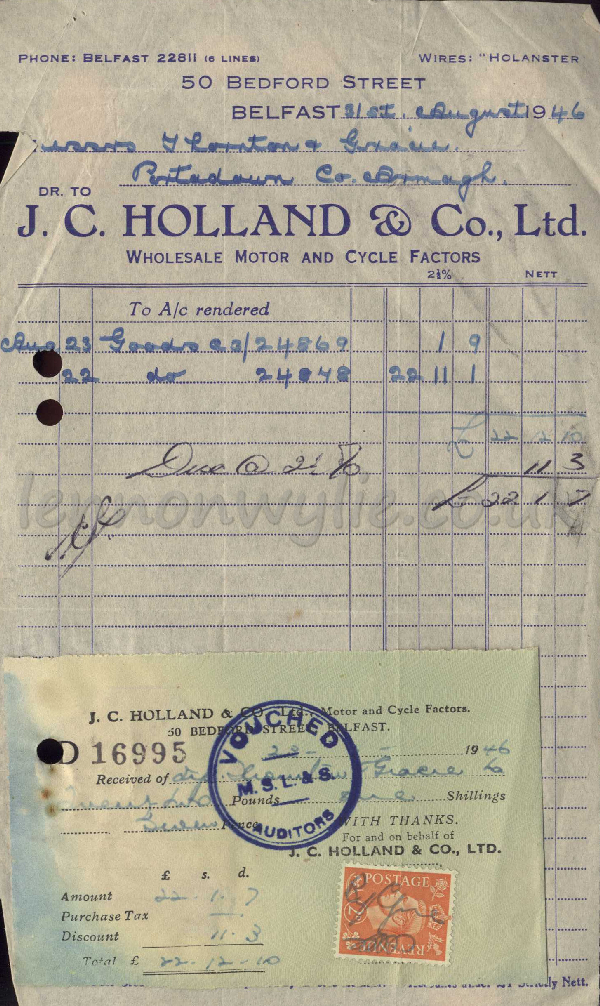 PHONE: BELFAST 22811 (6 LINES) WIRES: "HOLANSTER
50 BEDFORD STREET
BELFAST 31st. August 1946
Thornton & Gracie.
Portadown Co. Armagh.
DR. TO
J. C. HOLLAND & Co., Ltd.
WHOLESALE MOTOR AND CYCLE FACTORS
2½% NETT
To A/c rendered
Aug 23 Goods 24869 1 9
22 do 24848 22 11 1
£ 22 12 10
Disc @ 2½ % 11 3
£ 22 1 7
lennonwylie.co.uk
J. C. HOLLAND & CO., LTD., Motor and Cycle Factors.
50 BEDFORD STREET, BELFAST.
D 16995 1946
Received of Thornton & Gracie
Twenty two Pounds one Shillings
Seven Pence WITH THANKS.
For and on behalf of
J. C. HOLLAND & CO., LTD.
VOUCHED
M. S. L. & S.
AUDITORS
£ s. d.
Amount 22 . 1 . 7
Purchase Tax
Discount 11 . 3
Total £ 22 - 12 - 10
POSTAGE
REVENUE
Nett.